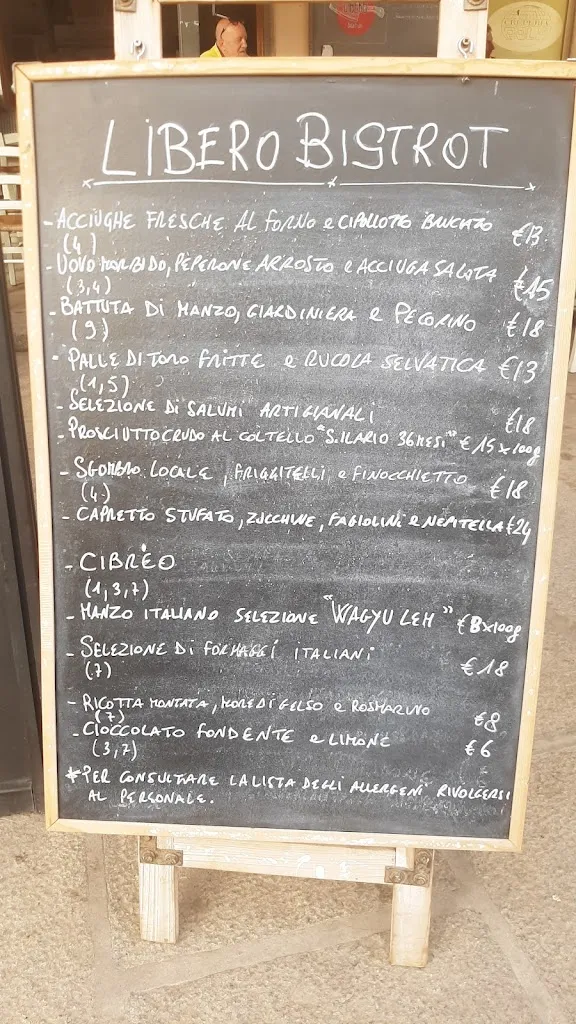 LIBERO BISTROT
- ACCIUGHE FRESCHE AL FORNO e CIPOLLOTTO BRUCIATO €13
(4)
- UOVO MORBIDO, PEPERONE ARROSTO e ACCIUGA SALATA €15
(3,4)
- BATTUTA DI MANZO, GIARDINIERA e PECORINO €18
(9)
- PALLE DI TORO FRITTE e RUCOLA SELVATICA €13
(1,5)
- SELEZIONE DI SALUMI ARTIGIANALI €18
- PROSCIUTTO CRUDO AL COLTELLO "S.ILARIO 36 MESI" €15x100g
- SGOMBRO LOCALE, FRIGGITELLI e FINOCCHIETTO €18
(4)
- CAPRETTO STUFATO, ZUCCHINE, FAGIOLINI e NEPITELLA €24
- CIBRÈO
(1,3,7)
- MANZO ITALIANO SELEZIONE "WAGYU LEM" €8x100g
- SELEZIONE DI FORMAGGI ITALIANI €18
(7)
- RICOTTA MONTATA, MORE DI GELSO e ROSMARINO €8
(7)
- CIOCCOLATO FONDENTE e LIMONE €6
(3,7)
*PER CONSULTARE LA LISTA DEGLI ALLERGENI RIVOLGERSI
AL PERSONALE.